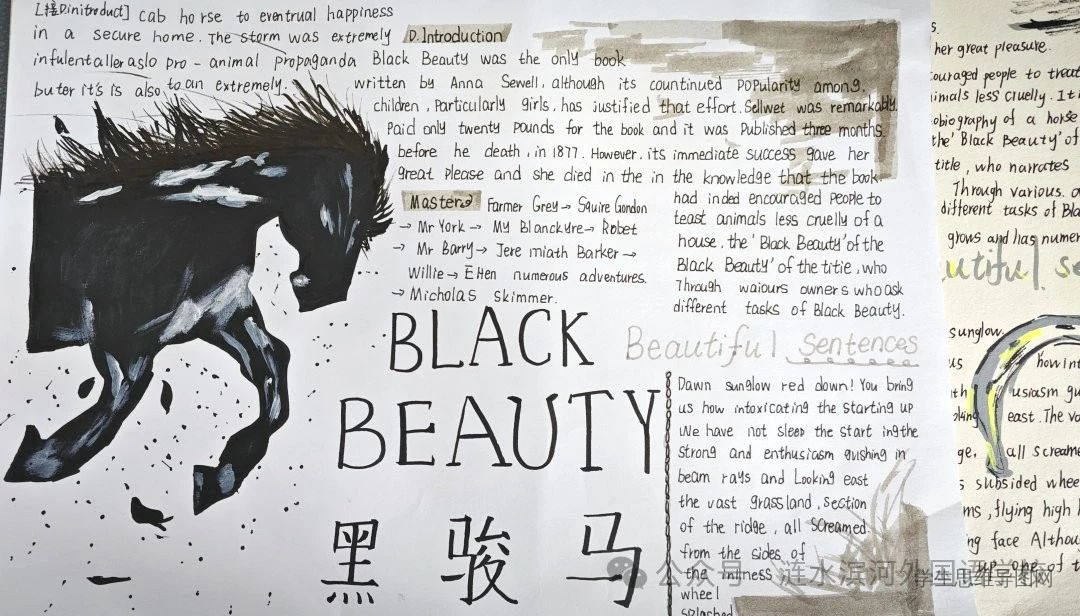 [接Dinitroduct] cab horse to eventrual happiness
in a secure home. The storm was extremely
infulentalleraslo pro-animal propaganda
buter it's is also to an extremely.
D. Introduction
Black Beauty was the only book
written by Anna Sewell, although its countinued popularity among
children, Particularly girls, has iustified that effort. Sellwet was remarkably
Paid only twenty pounds for the book and it was Published three months
before he death, in 1877. However, its immediate success gave her
great Please and she died in the in the knowledge that the book
had inded encouraged People to
teast animals less cruelly of a
house, the 'Black Beauty' of the
Black Beauty' of the titie, who
Through waiours owners who ask
different tasks of Black Beauty.
Master
Farmer Grey→ Squire Gordon
→ Mr York → My Blanckyre→ Robet
→ Mr Barry→ Jere miath Barker→
Willie→ Ellen numerous adventures.
→ Micholas Skimmer.
BLACK
BEAUTY
黑骏马
Beautiful Sentences
Dawn sunglow red down! You bring
us how intoxicating the starting up
We have not sleep the start ing the
Strong and enthusiasm gushing in
beam rays and Looking east
the vast grassland, section
of the ridge, all screamed
from the sides of
the
wheel
splashed
s.
her great pleasure.
couraged people to treat
nimals less cruelly. It i
obiography of a horse
the 'Black Beauty' of
title, who narrates
Through various. o
different tasks of Bla
grows and has numer
utiful se
sunglow.
us how int
ith usiasm gu
oking east. The va
ge, all screame
s subsided whee
ms, flying high
ng face Althou
up one of t
公众号·涟水滨河外国语学校
学生思维导图网